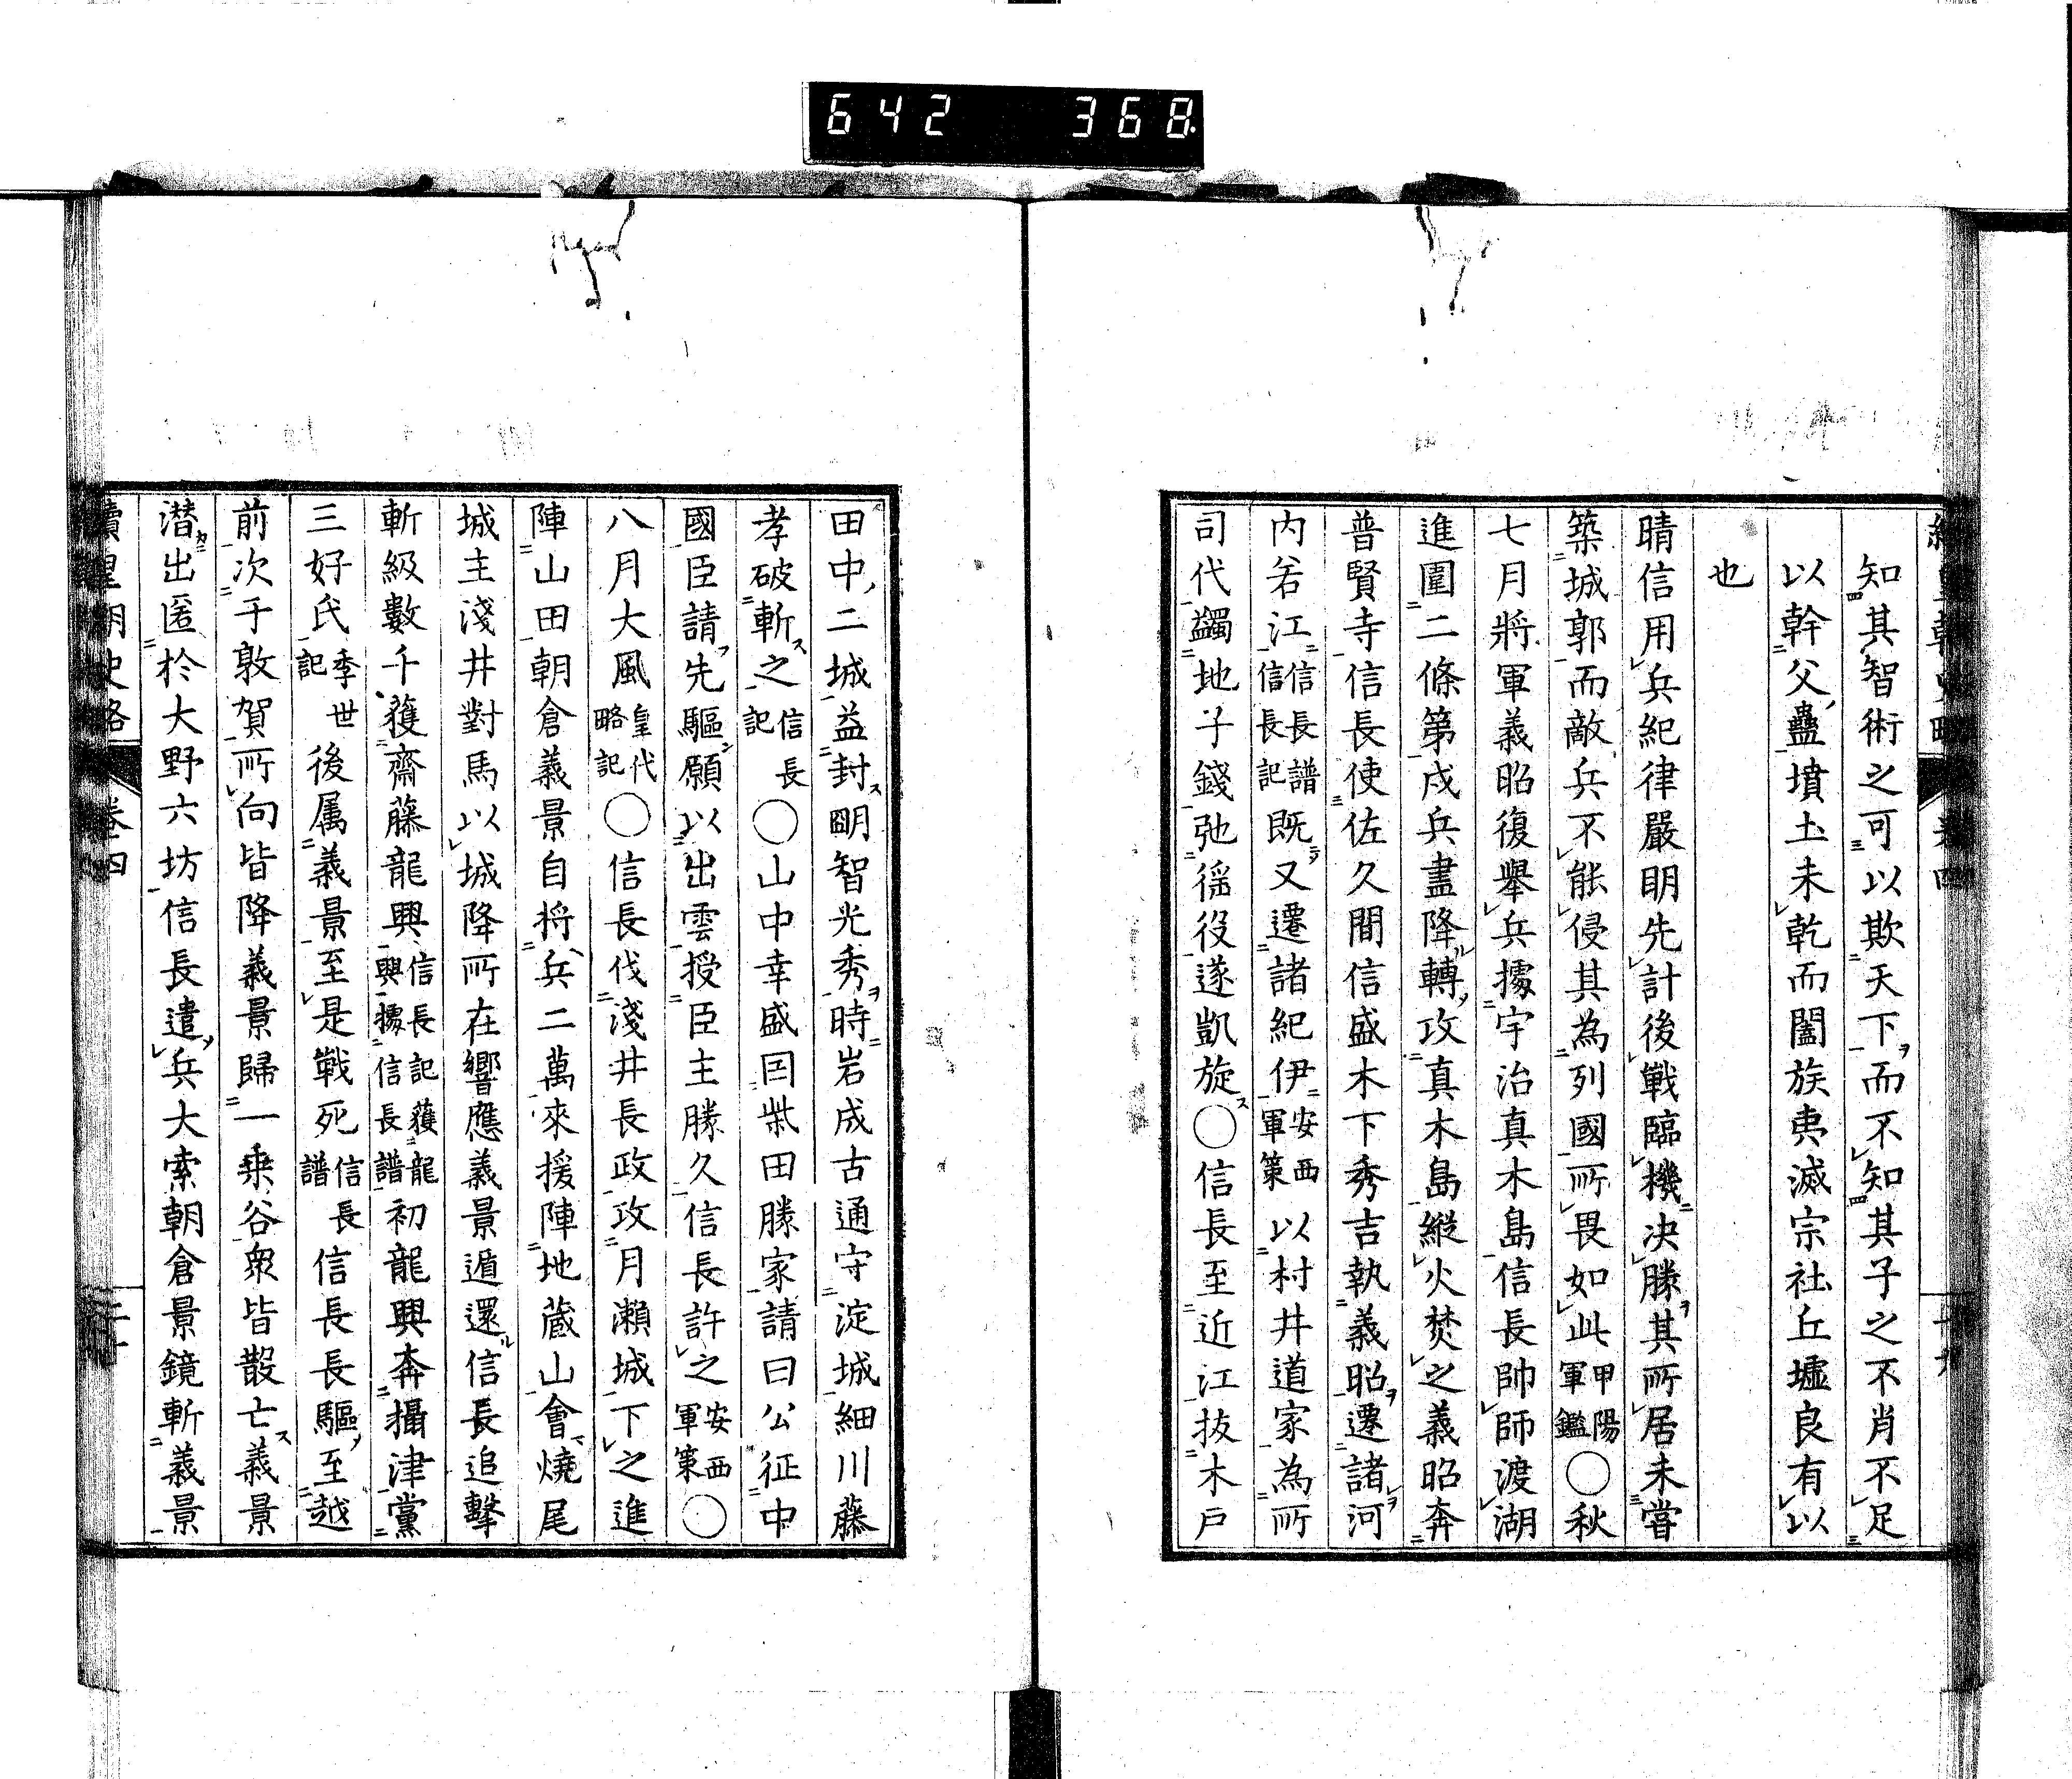 642 368
知其智術之可以欺天下而不知其子之不肖不足
以幹父蠱墳土未乾而闔族夷滅宗社丘墟良有以
也
晴信用兵紀律嚴明先計後戰臨機决勝其所居未嘗
築城郭而敵兵不能侵其為列國所畏如此甲陽軍鑑〇秋
七月將軍義昭復舉兵據宇治真木島信長帥師渡湖
進圍二條第戍兵盡降轉攻真木島縱火焚之義昭奔
普賢寺信長使佐久間信盛木下秀吉執義昭遷諸河
内若江信長譜信長記既又遷諸紀伊安西軍策以村井道家為所
司代蠲地子錢弛徭役遂凱旋〇信長至近江抜木戸
田中二城益封明智光秀時岩成古通守淀城細川藤
孝破斬之信長記〇山中幸盛因柴田勝家請曰公征中
國臣請先驅願以出雲授臣主勝久信長許之安西軍策〇
八月大風皇代略記〇信長伐淺井長政攻月瀬城下之進
陣山田朝倉義景自將兵二萬來援陣地蔵山會燒尾
城主淺井對馬以城降所在響應義景遁還信長追擊
斬級數千獲齋藤龍興信長記獲龍興據信長譜初龍興奔攝津黨
三好氏季世記後属義景至是戰死信長譜信長長驅至越
前次于敦賀所向皆降義景歸一乗谷衆皆散亡義景
潜出匿於大野六坊信長遣兵大索朝倉景鏡斬義景
續皇朝史略 卷四